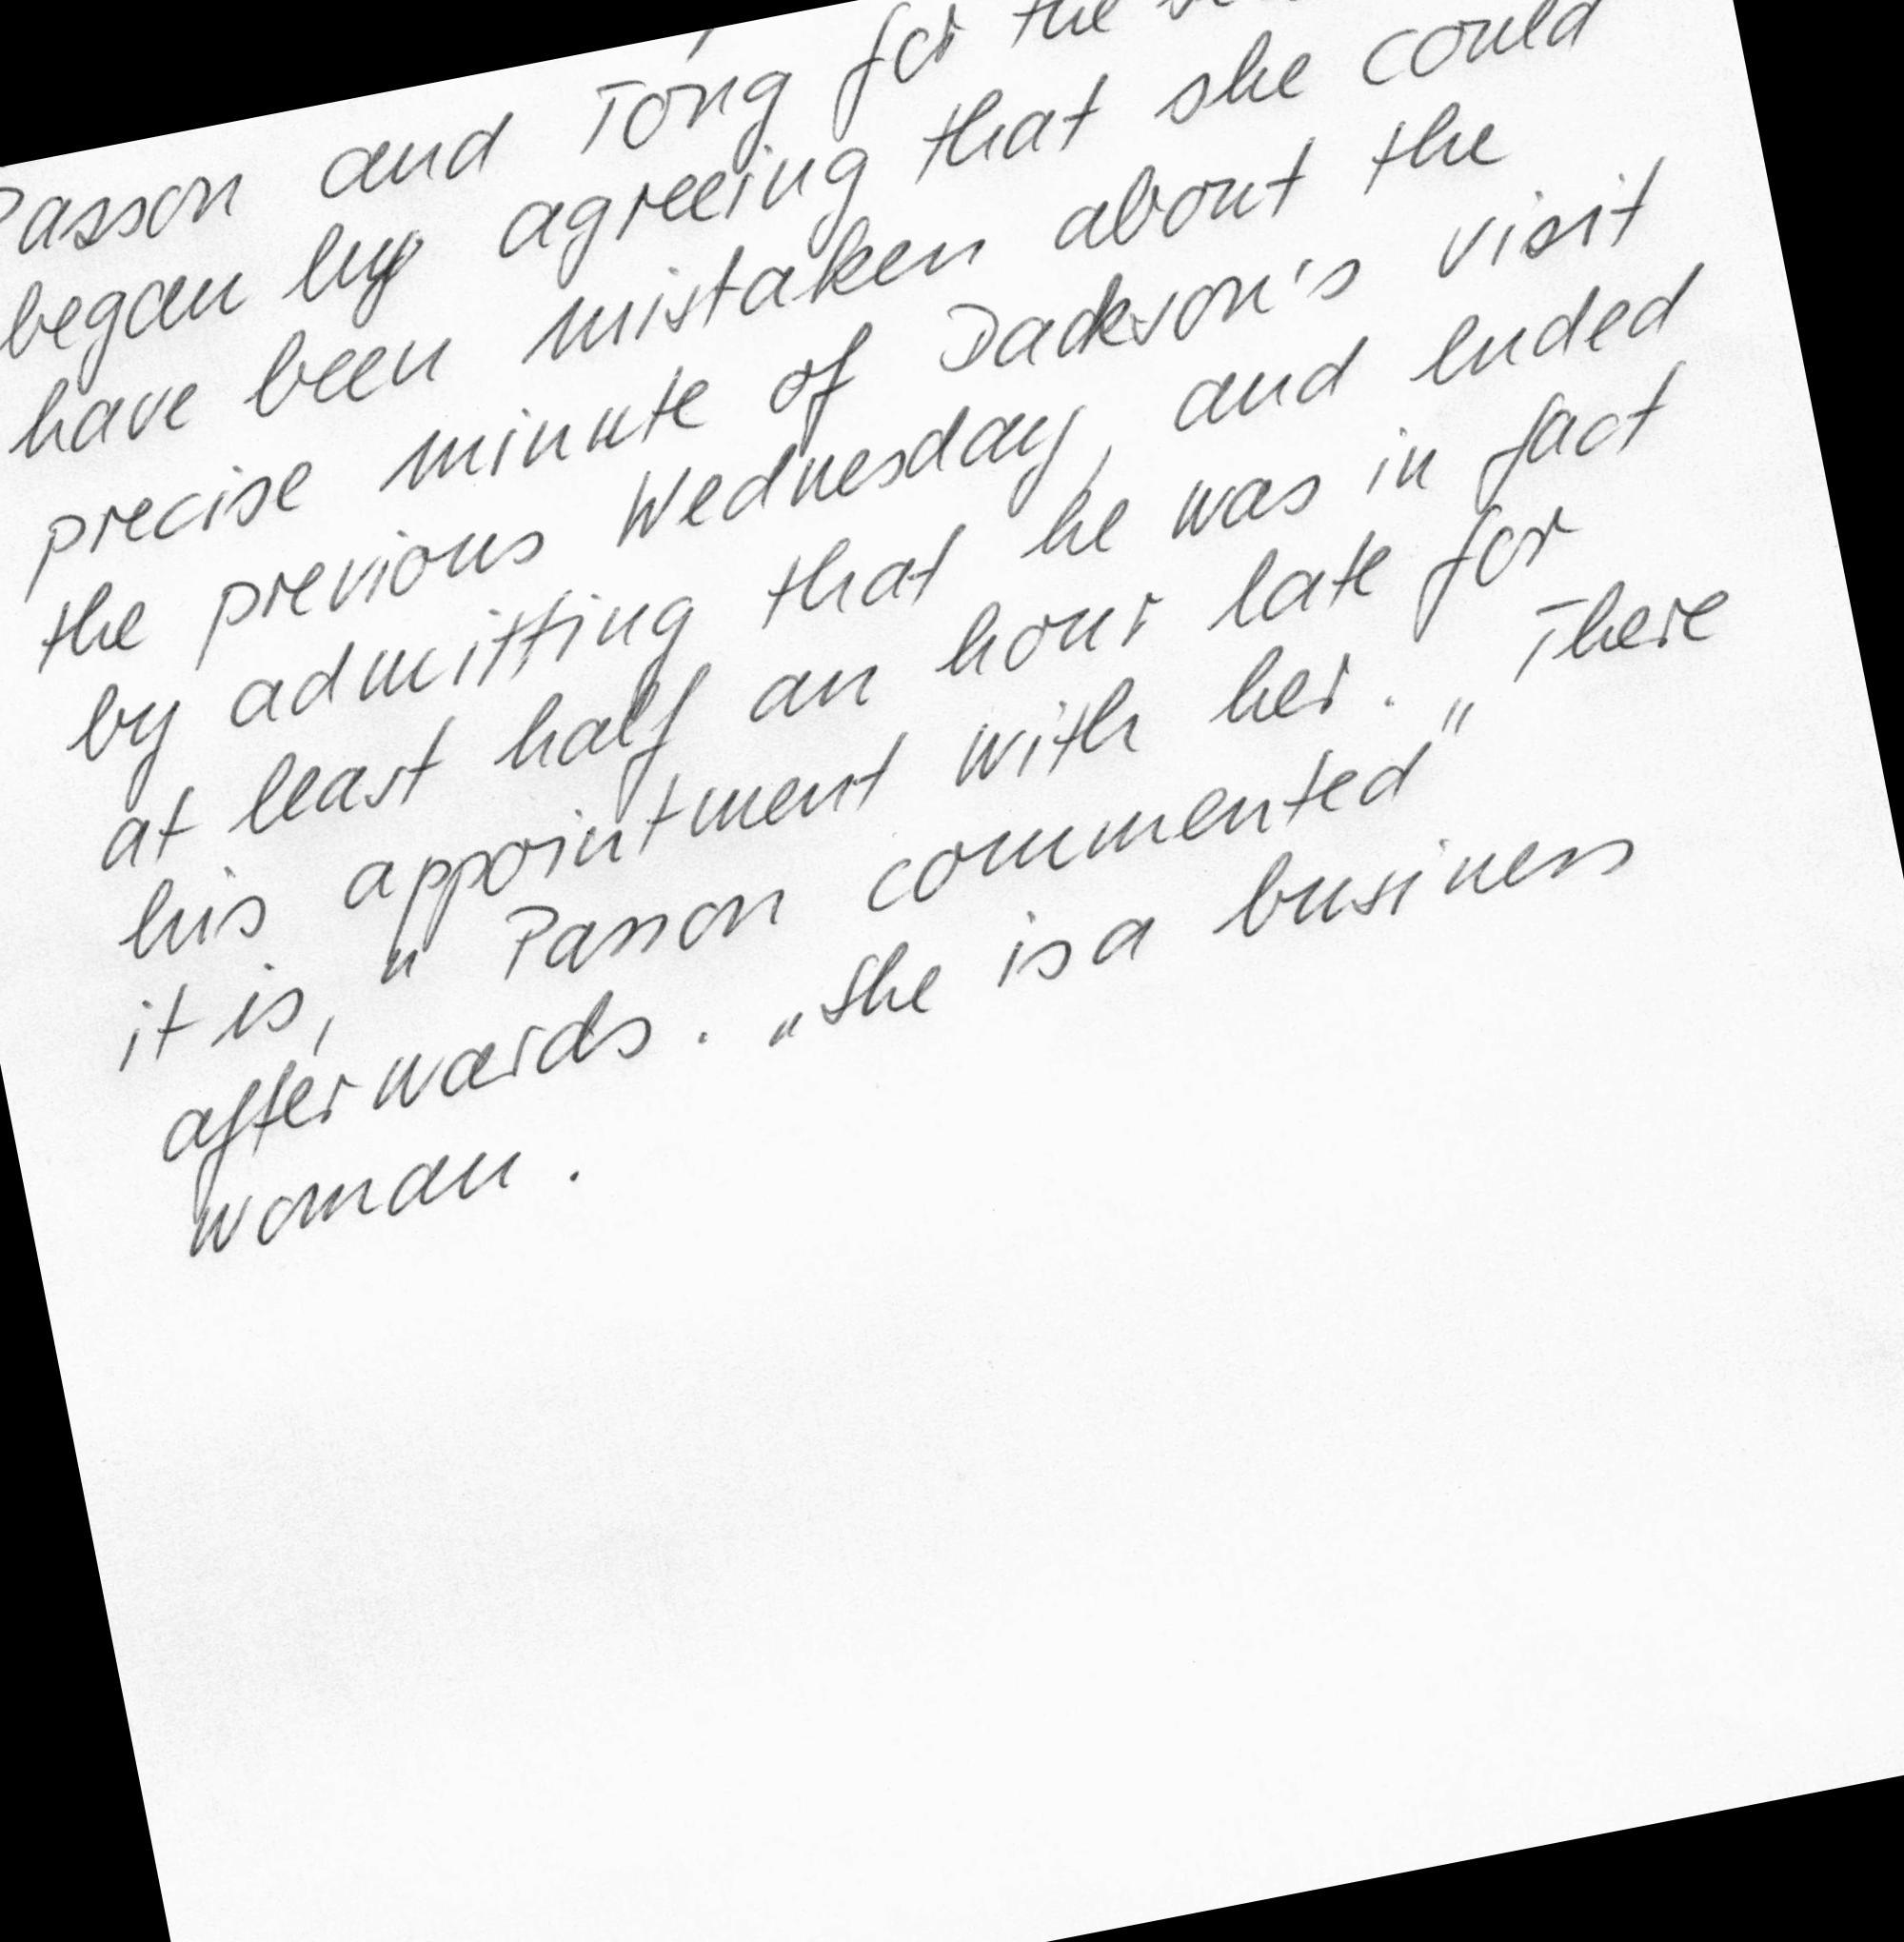 Passon and Tong for the
began by agreeing that she could
have been mistaken about the
precise minute of Jackson's visit
the previous Wednesday, and ended
by admitting that he was in fact
at least half an hour late for
his appointment with her. „There
it is," Passon commented"
afterwards. „She is a business
woman.